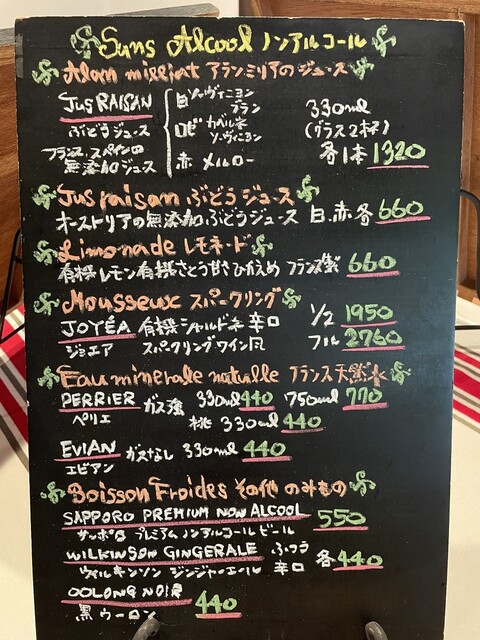 Sans Alcool ノンアルコール
Alan milliat アランミリアのジュース
Jus RAISAN 白 ソーヴィニヨン ブラン
ぶどうジュース ロゼ カベルネ ソーヴィニヨン 330ml (グラス2杯)
フランス、スペインの 無添加ジュース 赤 メルロー 各1本 1320
Jus raisan ぶどうジュース
オーストリアの無添加ぶどうジュース 白、赤各 660
Limonade レモネード
有機レモン有機さとう甘さひかえめ フランス製 660
Mousseux スパークリング
JOYÉA 有機シャルドネ 辛口 1/2 1950
ジョエア スパークリングワイン風 フル 2760
Eau minerale natulle フランス天然水
PERRIER ガス強 330ml 440 750ml 770
ペリエ 桃 330ml 440
EViAN ガスなし 330ml 440
エビアン
Boisson Froides その他 のみもの
SAPPORO PREMIUM NON ALCOOL 550
サッポロ プレミアムノンアルコールビール
WILKINSON GINGERALE ふつう 各 440
ウィルキンソン ジンジャーエール 辛口
OOLONG NOIR 440
黒ウーロン